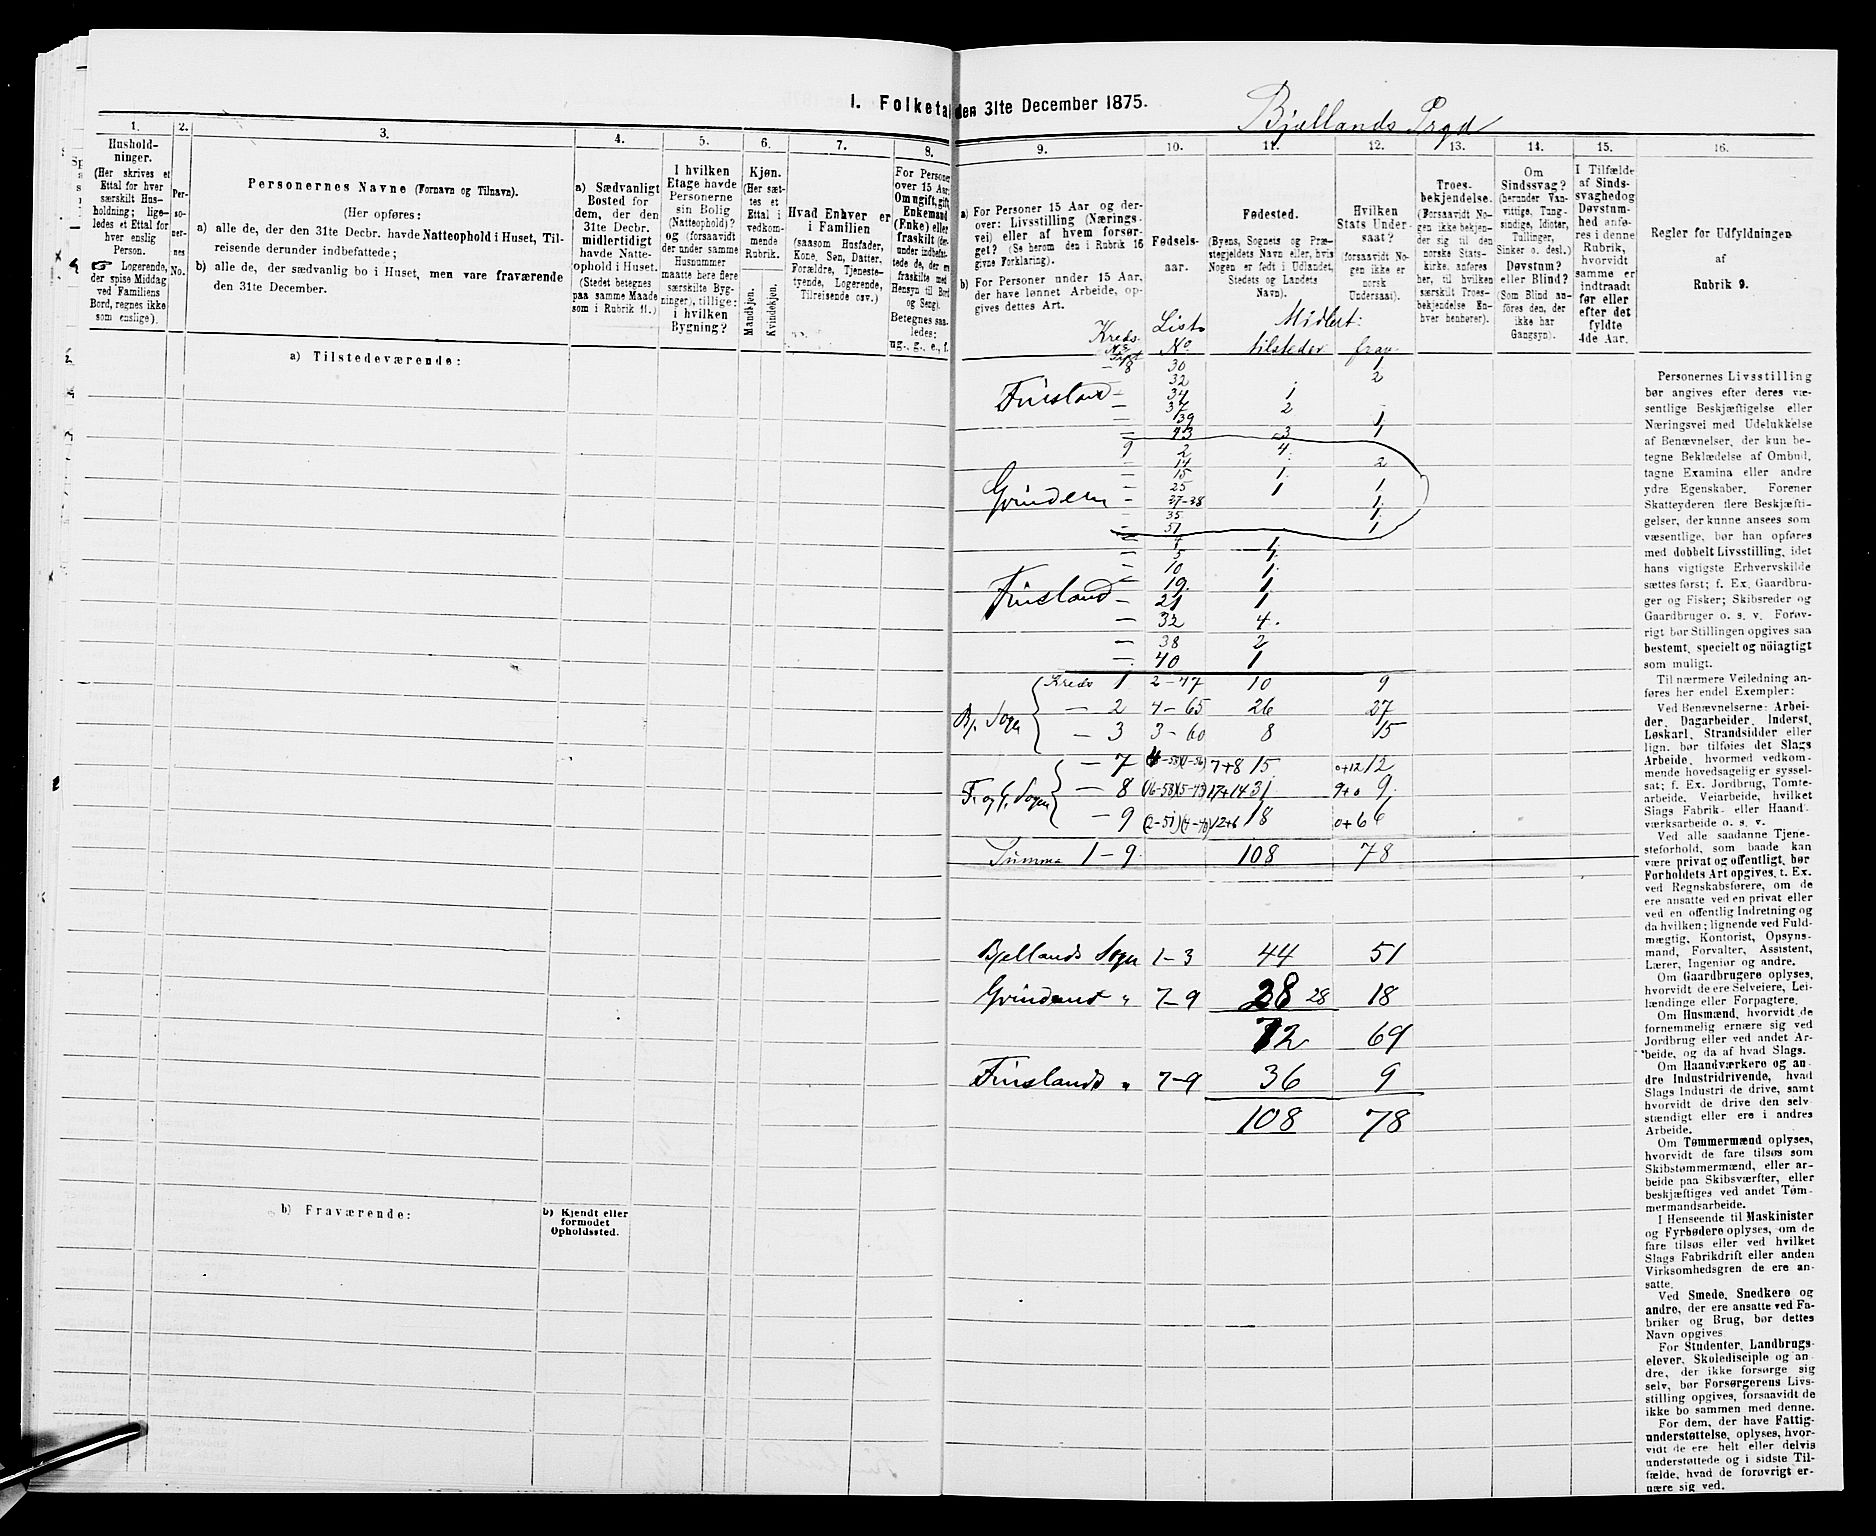 I. Folketal den 31te December 1875.
Bjellands Prgd
1.
Hushold-
ninger.
(Her skrives et
Ettal for hver
særskilt Hus-
holdning; lige-
ledes et Ettal for
hver enslig
Person.
☞ Logerende,
der spise Middag
ved Familiens
Bord, regnes ikke
som enslige).
2.
Per-
so-
ner-
nes
No.
3.
Personernes Navne (Fornavn og Tilnavn).
(Her opføres:
a) alle de, der den 31te Decbr. havde Natteophold i Huset, Til-
reisende derunder indbefattede;
b) alle de, der sædvanlig bo i Huset, men vare fraværende
den 31te December.
a) Tilstedeværende:
4.
a) Sædvanligt
Bosted for
dem, der den
31te Decbr.
midlertidigt
havde Natte-
ophold i Huset.
(Stedet betegnes
paa samme Maade
som i Rubrik 11.)
5.
I hvilken
Etage havde
Personerne
sin Bolig
(Natteophold)?
og (forsaavidt
der under samme
Husnummer
maatte være flere
særskilte Byg-
ninger), tillige:
i hvilken
Bygning?
6.
Kjøn.
(Her sæt-
tes et
Ettal i
vedkom-
mende
Rubrik.
Mandkjøn.
Kvindekjøn.
7.
Hvad Enhver er
i Familien
(saasom Husfader,
Kone, Søn, Datter,
Forældre, Tjeneste-
tyende, Logerende,
Tilreisende osv.)
8.
For Personer
over 15 Aar:
Om ugift, gift,
Enkemand
(Enke) eller
fraskilt
Betegnes saa-
ledes:
ug., g., e., f.
9.
a) For Personer 15 Aar og der-
over: Livsstilling (Nærings-
vei) eller af hvem forsør-
get? (Se herom den i Rubrik 16
givne Forklaring).
b) For Personer under 15 Aar,
der have lønnet Arbeide, op-
gives dettes Art.
10.
Fødsels-
aar.
11.
Fødested.
(Byens, Sognets og Præ-
stegjeldets Navn eller, hvis
Nogen er født i Udlandet,
Stedets og Landets
Navn).
12.
Hvilken
Stats Under-
saat?
(forsaavidt No-
gen ikke er
norsk
Undersaat).
13.
Troes-
bekjendelse.
(Forsaavidt No-
gen ikke bekjen-
der sig til den
norske Stats-
kirke, anføres
her, til hvilken
særskilt Troes-
bekjendelse En-
hver henhører).
14.
Om
Sindssvag?
eller Blind?
(herunder Van-
vittige, Tung-
sindige, Idioter,
Tullinger,
Sinker o. desl.)
Døvstum?
eller Blind?
(Som Blind an-
føres den, der
ikke har
Gangsyn).
15.
I Tilfælde
af Sinds-
svaghed og
Døvstum-
hed anfø-
res i denne
Rubrik,
hvorvidt
samme er
indtraadt
før eller
efter det
fyldte
4de Aar.
16.
Regler for Udfyldningen
af
Rubrik 9.
Kreds No List No Midlert:
tilstede frav.
8 30 1
32 2
Finsland — 34 1
— 37 2
— 39 1
— 43 3 1
9 2 4
— 14 2
— 15 1
— 25 1 1
Grindem — 27-38 1
— 35 1
— 51 1
— 5 1
— 10 1
— 19 1
Finsland — 21 1
— 32 4
— 38 2
— 40 1
Kreds 1 2-47 10 9
Bj. Sogn — 2 4-65 26 27
— 3 3-60 8 15
— 7 7+8 15 0+12 12
F. og G. Sogn — 8 (16-58)(5-43) 17+14 31 9+0 9
— 9 12+6 18 0+6 6
Summa 1-9 108 78
Bjellands Sogn 1-3 44 51
Grindems " 7-9 28 28 18
72 69
Finslands " 7-9 36 9
108 78
b) Fraværende:
b) Kjendt eller
formodet
Opholdssted.
Personernes Livsstilling
bør angives efter deres væ-
sentlige Beskjæftigelse eller
Næringsvei med Udelukkelse
af Benævnelser, der kun be-
tegne Beklædelse af Ombud,
tagne Examina eller andre
ydre Egenskaber. Forener
Skatteyderen flere Beskjæfti-
gelser, der kunne ansees som
væsentlige, bør han opføres
med dobbelt Livsstilling, idet
hans vigtigste Erhvervskilde
sættes først; f. Ex. Gaardbru-
ger og Fisker; Skibsreder og
Gaardbruger o. s. v. Forøv-
rigt bør Stillingen opgives saa
bestemt, specielt og nöiagtigt
som muligt.
Til nærmere Veiledning an-
føres her endel Exempler:
Ved Benævnelserne: Arbei-
der, Dagarbeider, Inderst,
Løskarl, Strandsidder eller
lign. bør tilføies det Slags
Arbeide, hvormed vedkom-
mende hovedsagelig er syssel-
sat; f. Ex. Jordbrug, Tomte-
arbeide, Veiarbeide, hvilket
Slags Fabrik- eller Haand-
værksarbeide o. s. v.
Ved alle saadanne Tjene-
steforhold, som baade kan
være privat og offentligt, bør
Forholdets Art opgives, t. Ex.
ved Regnskabsførere, om de
ere ansatte ved en privat eller
ved en offentlig Indretning og
da hvilken; lignende ved Fuld-
mægtig, Kontorist, Opsyns-
mand, Forvalter, Assistent,
Lærer, Ingeniør og andre.
Om Gaardbrugere oplyses,
hvorvidt de ere Selveiere, Lei-
lændinge eller Forpagtere.
Om Husmænd, hvorvidt de
fornemmelig ernære sig ved
Jordbrug eller ved andet Ar-
beide, og da af hvad Slags.
Om Haandværkere og an-
dre Industridrivende, hvad
Slags Industri de drive, samt
hvorvidt de drive den selv-
stændigt eller ere i andres
Arbeide.
Om Tømmermænd oplyses,
hvorvidt de fare tilsøs som
Skibstømmermænd, eller ar-
beide paa Skibsværfter, eller
beskjæftiges ved andet Tøm-
mermandsarbeide.
I Henseende til Maskinister
og Fyrbødere oplyses, om de
fare tilsøs eller ved hvilket
Slags Fabrikdrift eller anden
Virksomhedsgren de ere an-
satte.
Ved Smede, Snedkere og
andre, der ere ansatte ved Fa-
briker og Brug, bør dettes
Navn opgives
For Studenter, Landbrugs-
elever, Skoledisciple og an-
dre, der ikke forsørge sig
selv, bør Forsørgerens Livs-
stilling opgives, forsaavidt de
ikke bo sammen med denne.
For dem, der have Fattig-
understøttelse, oplyses, hvor-
vidt de ere helt eller delvis
understøttede og i sidste Til-
fælde, hvad de forøvrigt er-
nære sig ved.